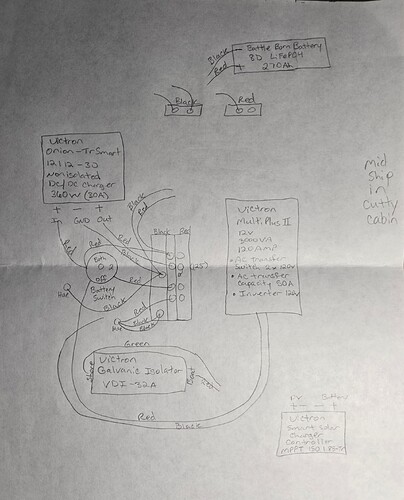 Black
Battle Born Battery
8D LiFePO4
Red
+ 270Ah
Black
Red
Victron
Orion-Tr Smart
12/12-30
Non isolated
DC/DC Charger
360W (30A)
+ +
In GND Out
Black
Red
Red
Red
Red
Black Red
Both
1 2
Off
Battery
Switch
Red
Black
Red
Black
Black
Victron
MultiPlus II
12V
3000VA
120Amp
• AC transfer
Switch 2x 120V
• AC transfer
Capacity 50A
• Inverter 120V
mid
Ship
in
Cutty
cabin
Green
Shore
Victron
Galvanic Isolator
VDI-32A
Boat
Red
Black
PV Battery
+ - - +
Victron
Smart Solar
Charger
Controller
MPPT